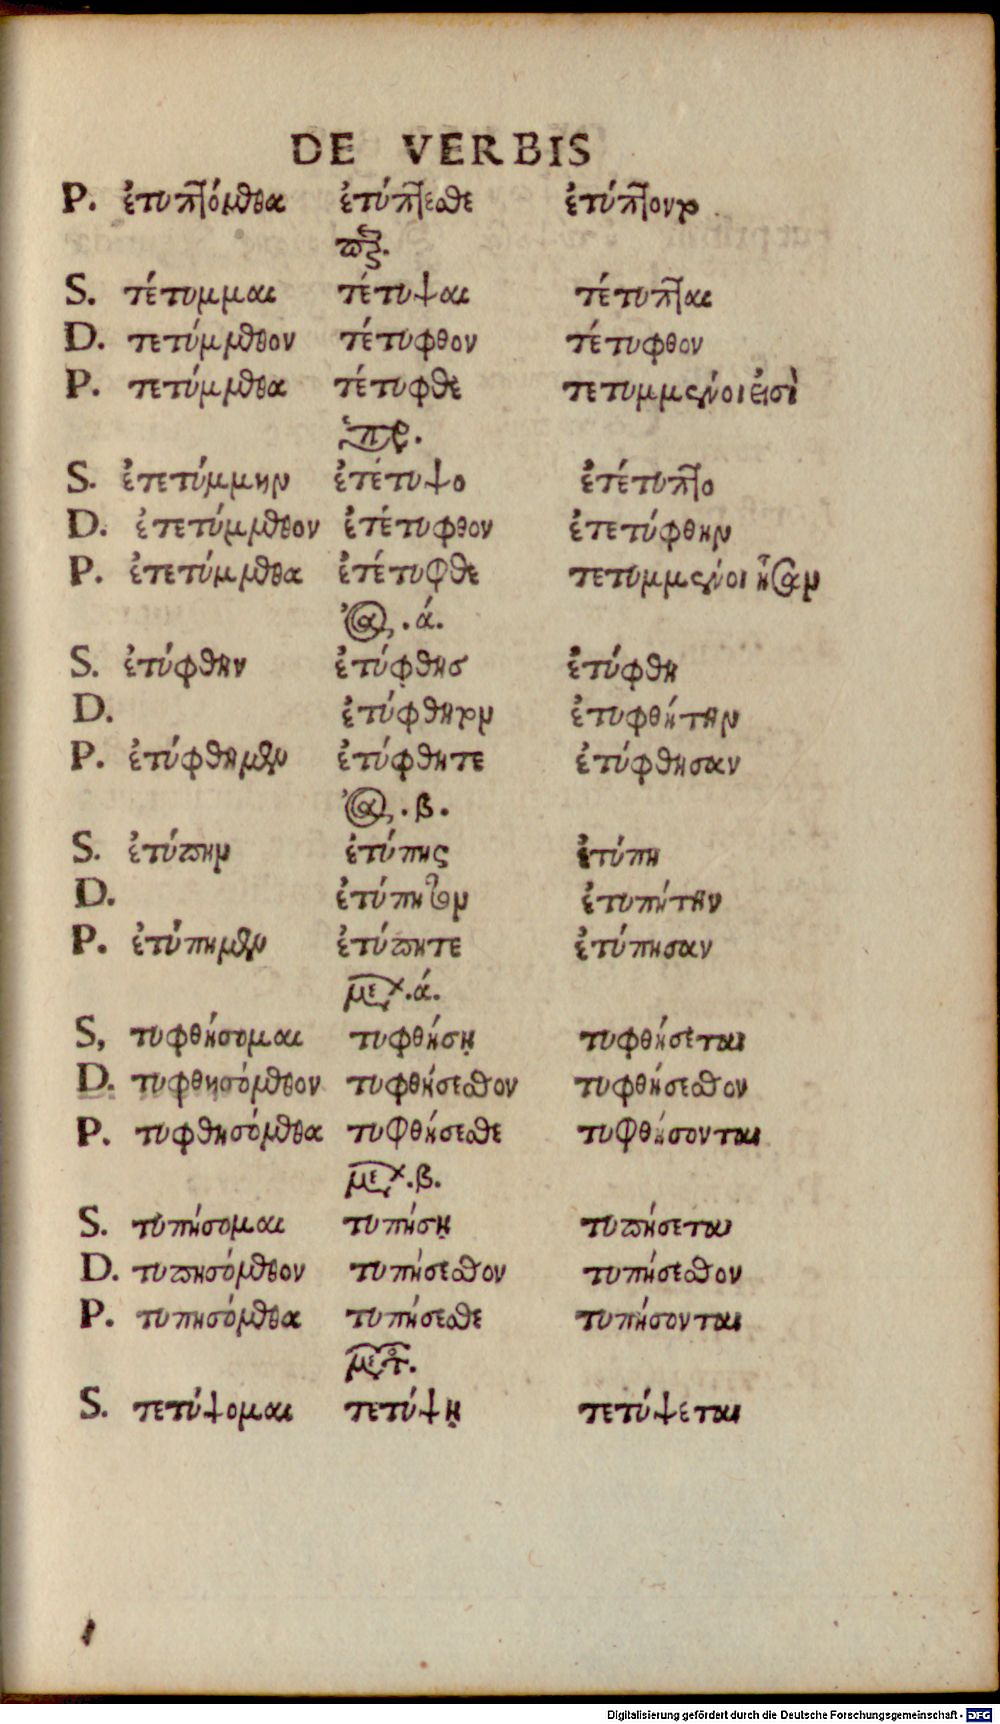 DE VERBIS
P. ἐτυπτόμεθα ἐτύπτεσθε ἐτύπτοντο
S. τέτυμμαι τέτυψαι τέτυπται
D. τετύμμεθον τέτυφθον τέτυφθον
P. τετύμμεθα τέτυφθε τετυμμένοι εἰσὶ
S. ἐτετύμμην ἐτέτυψο ἐτέτυπτο
D. ἐτετύμμεθον ἐτέτυφθον ἐτετύφθην
P. ἐτετύμμεθα ἐτέτυφθε τετυμμένοι ἦσαν
ά.
S. ἐτύφθην ἐτύφθησ ἐτύφθη
D. ἐτύφθητον ἐτυφθήτην
P. ἐτύφθημεν ἐτύφθητε ἐτύφθησαν
β.
S. ἐτύπην ἐτύπης ἐτύπη
D. ἐτύπητον ἐτυπήτην
P. ἐτύπημεν ἐτύπητε ἐτύπησαν
ά.
S, τυφθήσομαι τυφθήσῃ τυφθήσεται
D. τυφθησόμεθον τυφθήσεσθον τυφθήσεσθον
P. τυφθησόμεθα τυφθήσεσθε τυφθήσονται
β.
S. τυπήσομαι τυπήσῃ τυπήσεται
D. τυπησόμεθον τυπήσεσθον τυπήσεσθον
P. τυπησόμεθα τυπήσεσθε τυπήσονται
S. τετύψομαι τετύψῃ τετύψεται
Digitalisierung gefördert durch die Deutsche Forschungsgemeinschaft - DFG